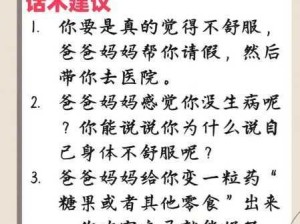 话术建议
1. 你要是真的觉得不舒服，
爸爸妈妈帮你请假，然后
带你去医院。
2. 爸爸妈妈感觉你没生病呢
？你能说说你为什么说自
己身体不舒服呢？
3. 爸爸妈妈给你变一粒药“
糖果或者其他零食”出来